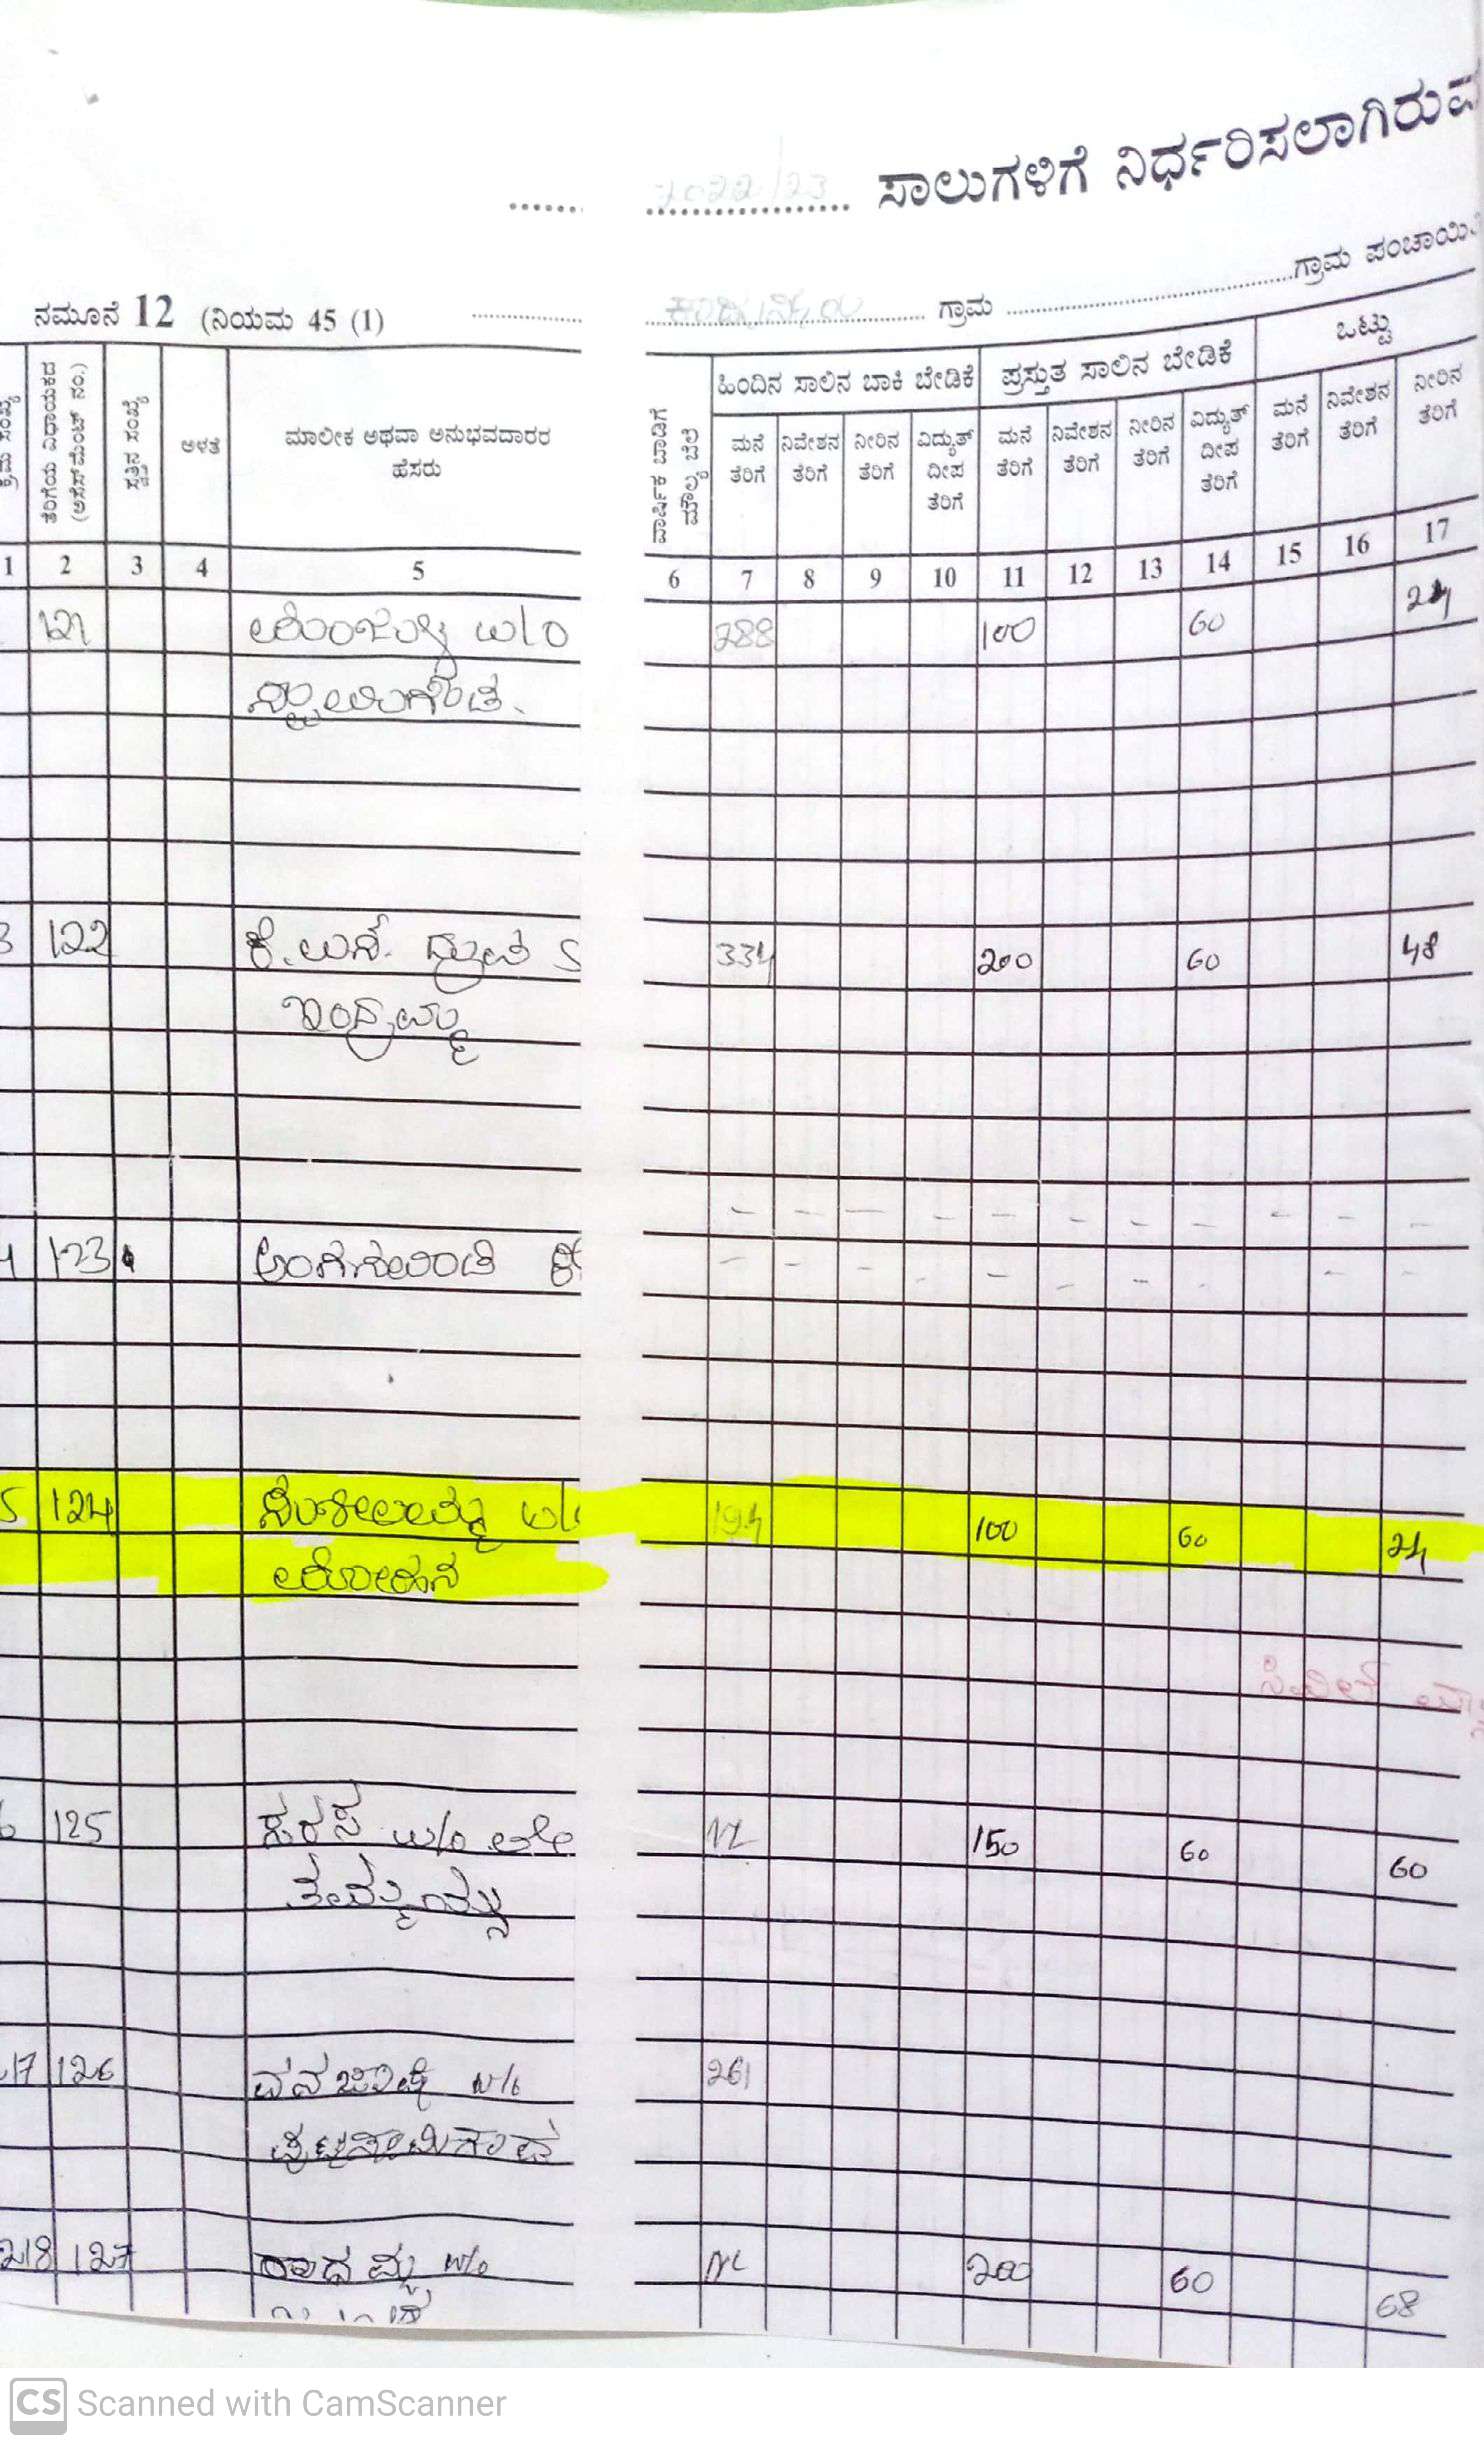 2022/23 ಸಾಲುಗಳಿಗೆ ನಿರ್ಧರಿಸಲಾಗಿರುವ
ನಮೂನೆ 12 (ನಿಯಮ 45 (1) ಗ್ರಾಮ ಗ್ರಾಮ ಪಂಚಾಯಿತಿ
ಕ್ರಮ ಸಂಖ್ಯೆ
ತೆರಿಗೆಯ ವಿಧಾಯಕದ (ಅಸೆಸ್‌ಮೆಂಟ್ ನಂ.)
ಸ್ವತ್ತಿನ ಸಂಖ್ಯೆ
ಅಳತೆ
ಮಾಲೀಕ ಅಥವಾ ಅನುಭವದಾರರ
ಹೆಸರು
ವಾರ್ಷಿಕ ಬಾಡಿಗೆ ಮೌಲ್ಯ ಬೆಲೆ
ಹಿಂದಿನ ಸಾಲಿನ ಬಾಕಿ ಬೇಡಿಕೆ ಪ್ರಸ್ತುತ ಸಾಲಿನ ಬೇಡಿಕೆ ಒಟ್ಟು
ಮನೆ ತೆರಿಗೆ ನಿವೇಶನ ತೆರಿಗೆ ನೀರಿನ ತೆರಿಗೆ ವಿದ್ಯುತ್ ದೀಪ ತೆರಿಗೆ ಮನೆ ತೆರಿಗೆ ನಿವೇಶನ ತೆರಿಗೆ ನೀರಿನ ತೆರಿಗೆ ವಿದ್ಯುತ್ ದೀಪ ತೆರಿಗೆ ಮನೆ ತೆರಿಗೆ ನಿವೇಶನ ತೆರಿಗೆ ನೀರಿನ ತೆರಿಗೆ
1 2 3 4 5 6 7 8 9 10 11 12 13 14 15 16 17
121 w/o 288 100 60 24
3 122 ಕೆ.ಎನ್. S 334 200 60 48
ಇಂದ್ರಮ್ಮ
4 123 ಅಂಗನವಾಡಿ ಕೆ
5 124 ಸುಶೀಲಮ್ಮ w/o 194 100 60 24
6 125 ಸರಸ w/o ಲೇ NL 150 60 60
ತಿಮ್ಮಯ್ಯ
17 126 ವನಜಾಕ್ಷಿ w/o 261
ಪುಟ್ಟಸ್ವಾಮಿಗೌಡ
218 127 ರಾಧಮ್ಮ w/o NL 200 60 68
CS Scanned with CamScanner